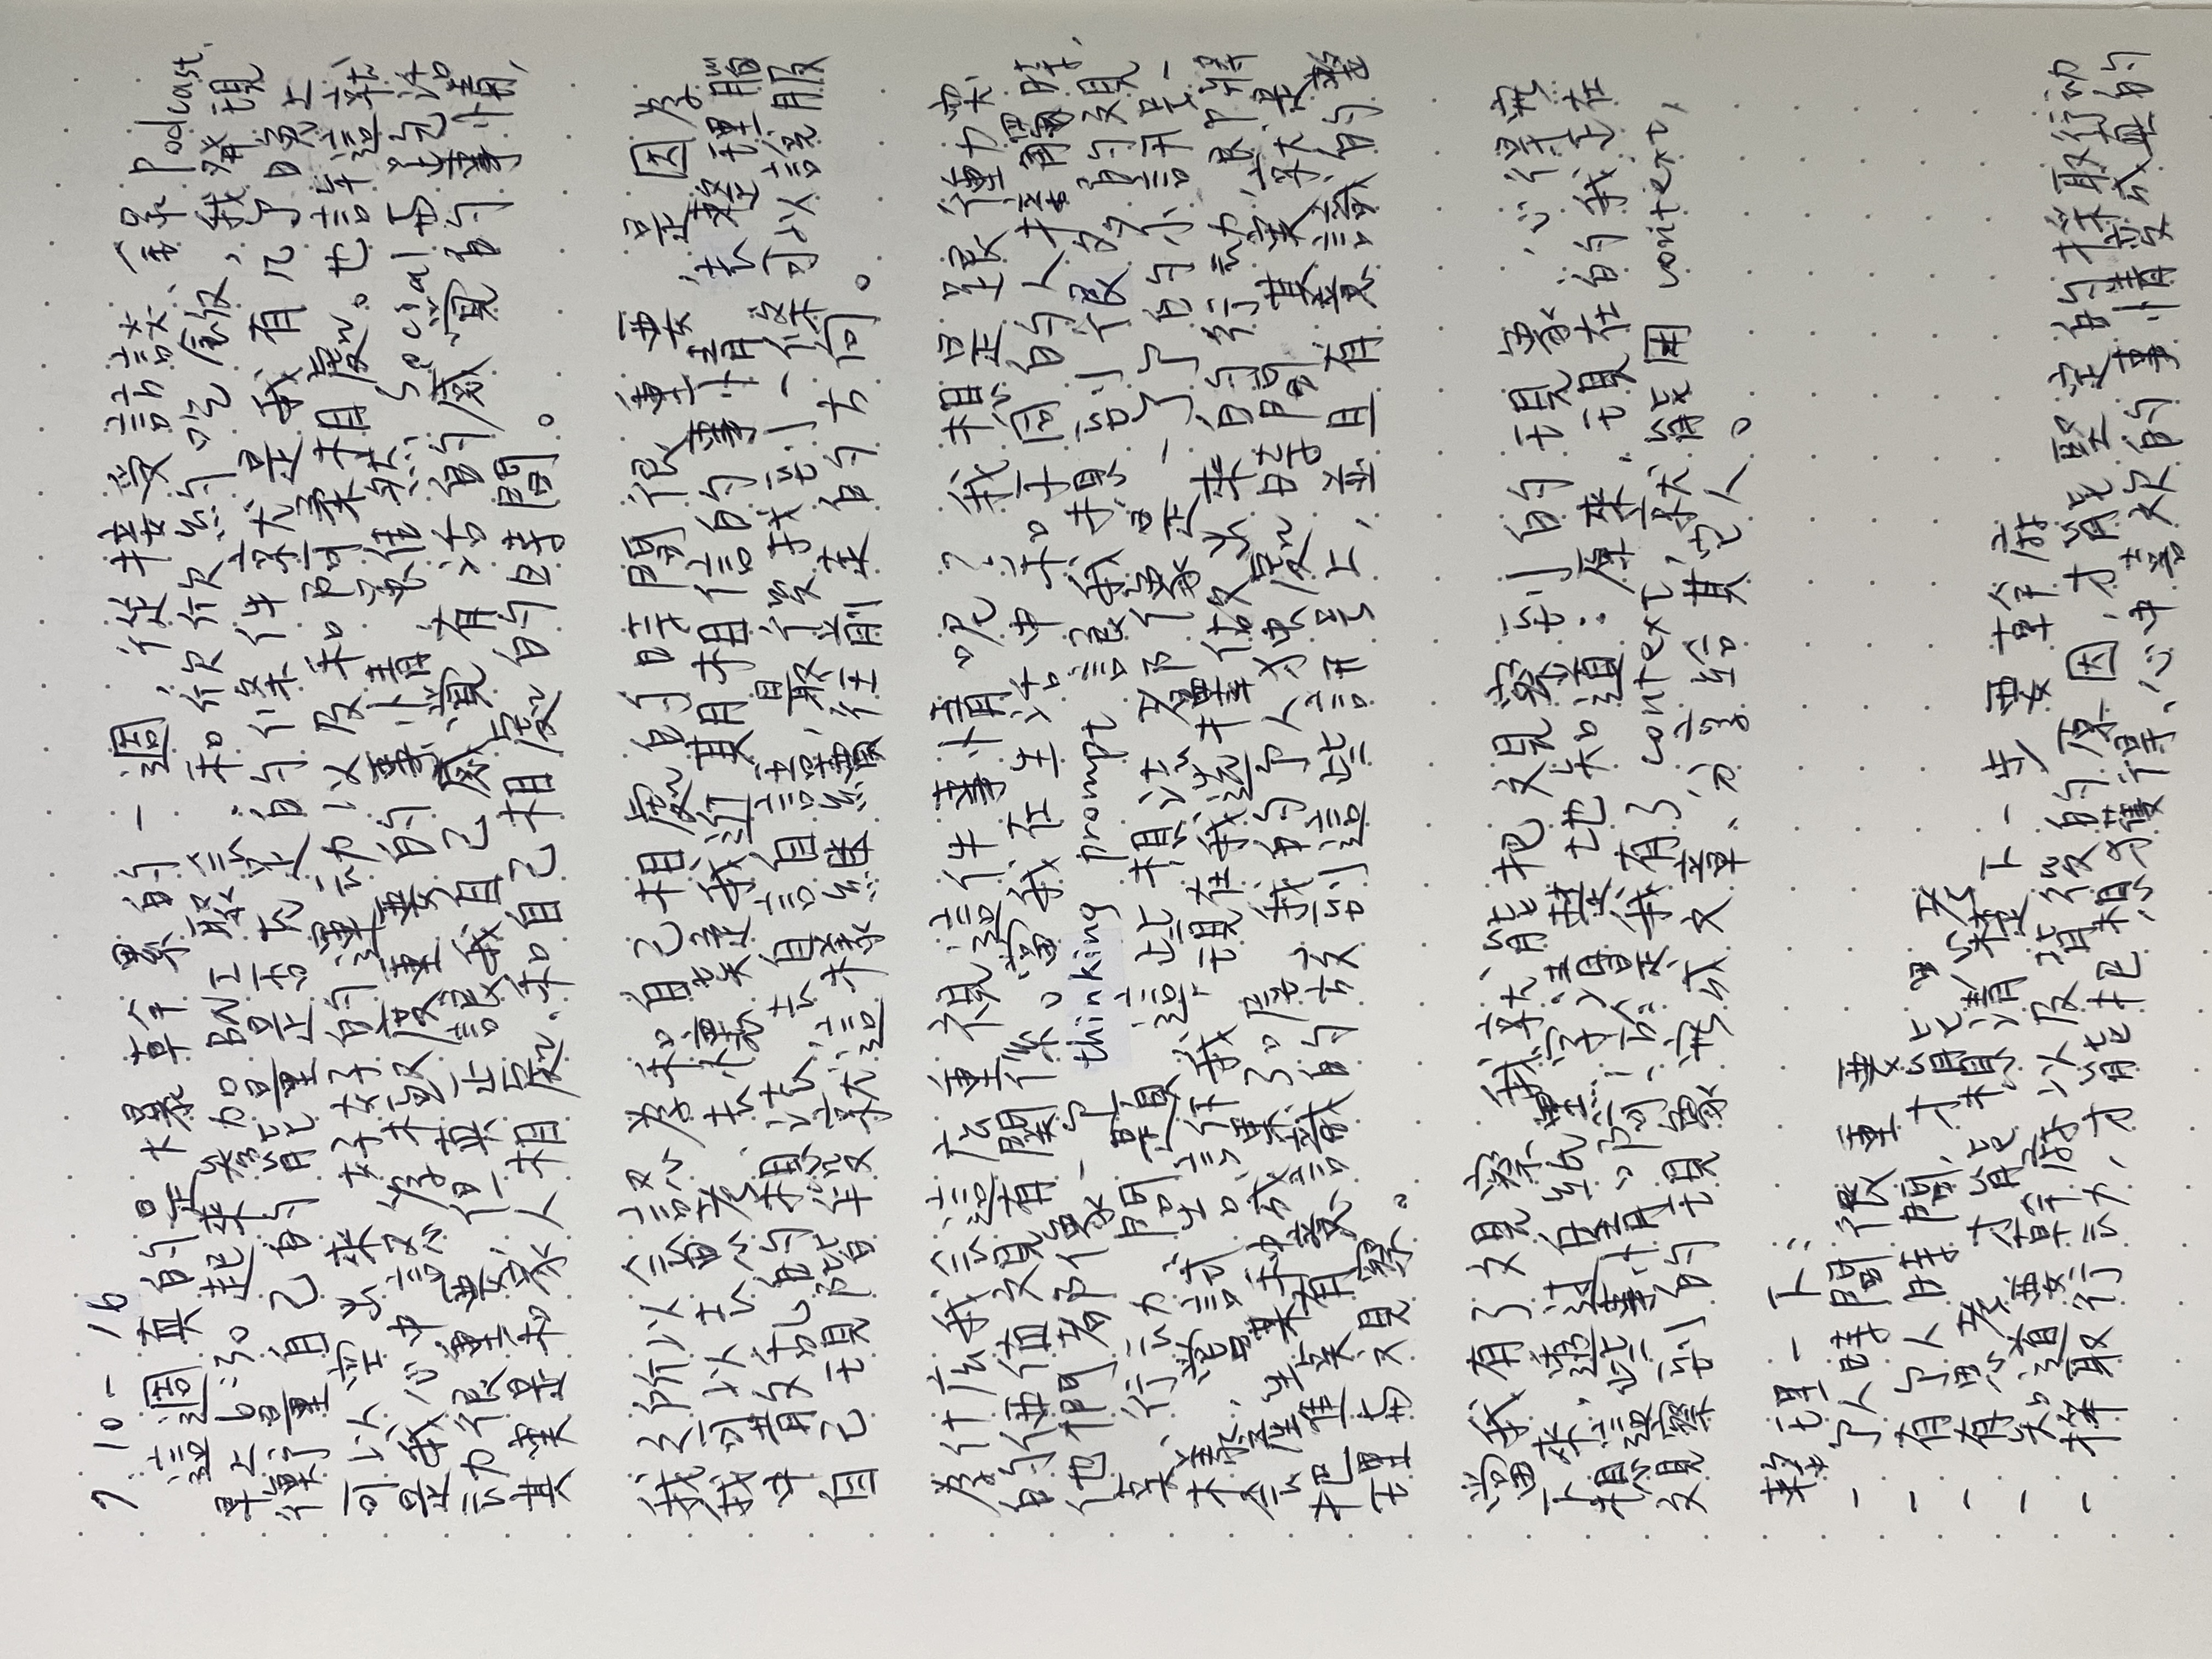 7.10-16
這週真的是爆幹累的一週,從接受訪談、錄Podcast、
早上6:30起來參加BNI聚会、和欣欣約吃飯,我發現
衡量自己的能量是否充足的條件就是我有几个晚上
可以空出來,好好的運动以及和阿柔相處。也許這就
是我心中認為極度重要的事情,雖然social与跑活
动很重要,但真正讓我自己感覺有活的感覺的事情,
其实是和家人相處、和自己相處的時間。
我之所以會認為和自己相處的時間很重要,是因為
我可以去思考、去懷疑我近期相信的事情、去整理腦
中散乱的想法,去自言自語,最後找到一條可以說服
自己現階段就這樣繼續往前走的方向。
為什庅我会這庅重視這件事情呢?我想是跟衝突
的価值观有關係。當我在生活中和不同的人接觸時,
他們都像一个thinking prompt讓我想到很多的观
葉、行动、問題,這些想法都像是一个个的小訊号一
樣,嘗試告訴我,現在我选擇做出來的行动,即將
会產生某种成果了喔,我的个人独處時間,其实就是
把進奌有意識的放到這些訊号上,並且有意識的整
理与观察。
當我有了观察,我就能把观察到的現象、心得写
下來,透过白紙黑字清楚地知道:原來,現在的我正在
想這些事情啊!於是我有了context,就能用context,
观察到的現象写成文章、分享給其它人。
整理一下:
- 个人時間很重要
- 有个人時間,才能思考
- 有思考,才能想清楚下一步要幹麻
- 知道要幹麻以及背後的原因,才能堅定的採取行动
- 採取行动,才能把想獲得、心中喜欢的事情变成真的